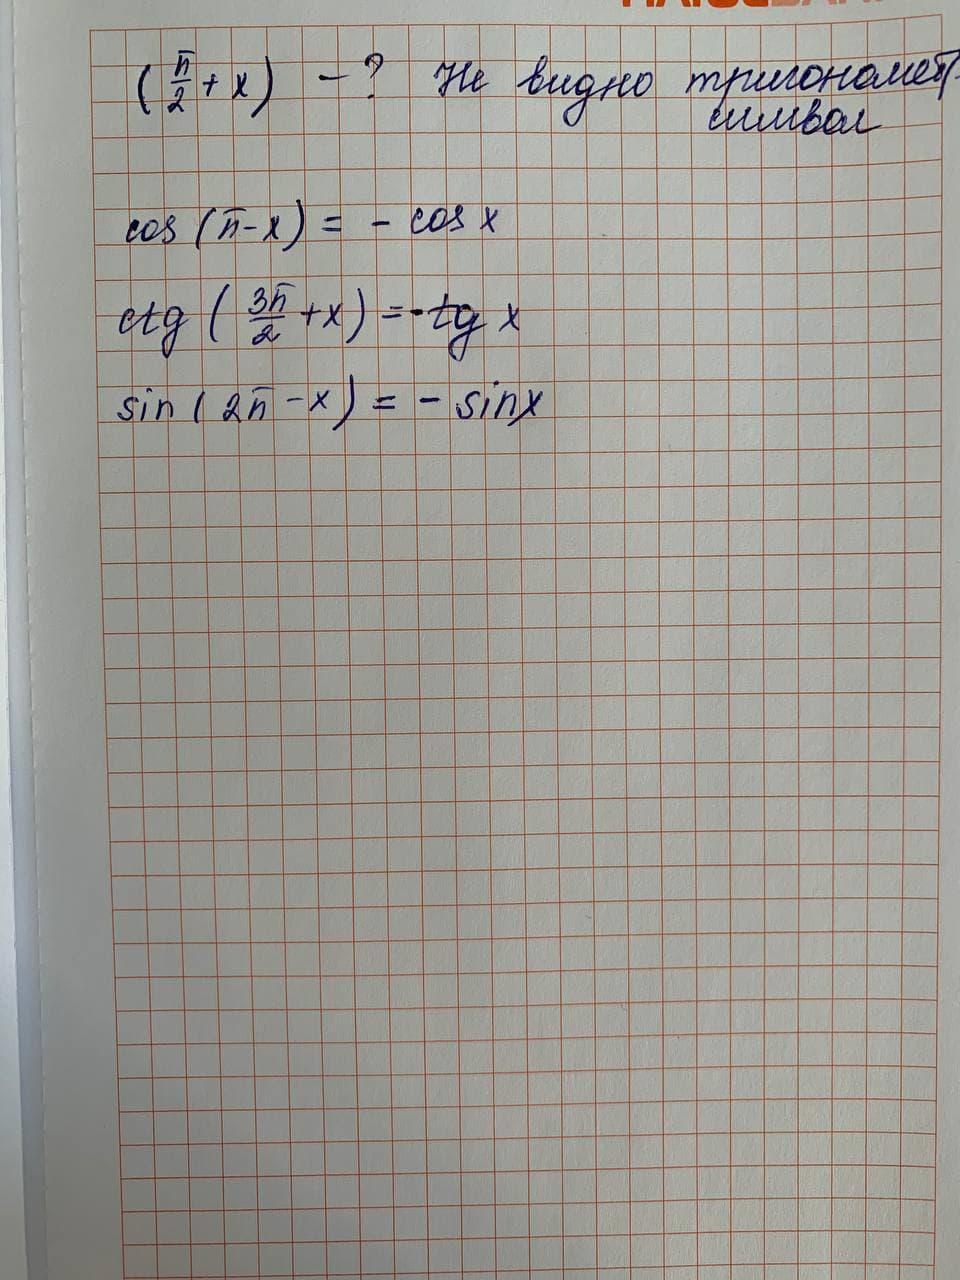 (π/2 + x) – ? Не видно тригономет
символ
cos (π - x) = - cos x
ctg (3π/2 + x) = - tg x
sin (2π - x) = - sin x